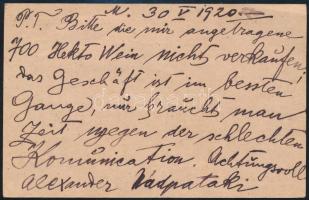 M. 30 V 1920.
P.T. Bitte die mir angetragene
700 Hekto Wein nicht verkaufen,
das Geschäft ist im besten
Gange, nur braucht man
Zeit wegen der schlechten
Komunication. Achtungsvoll
Alexander Nádpataki